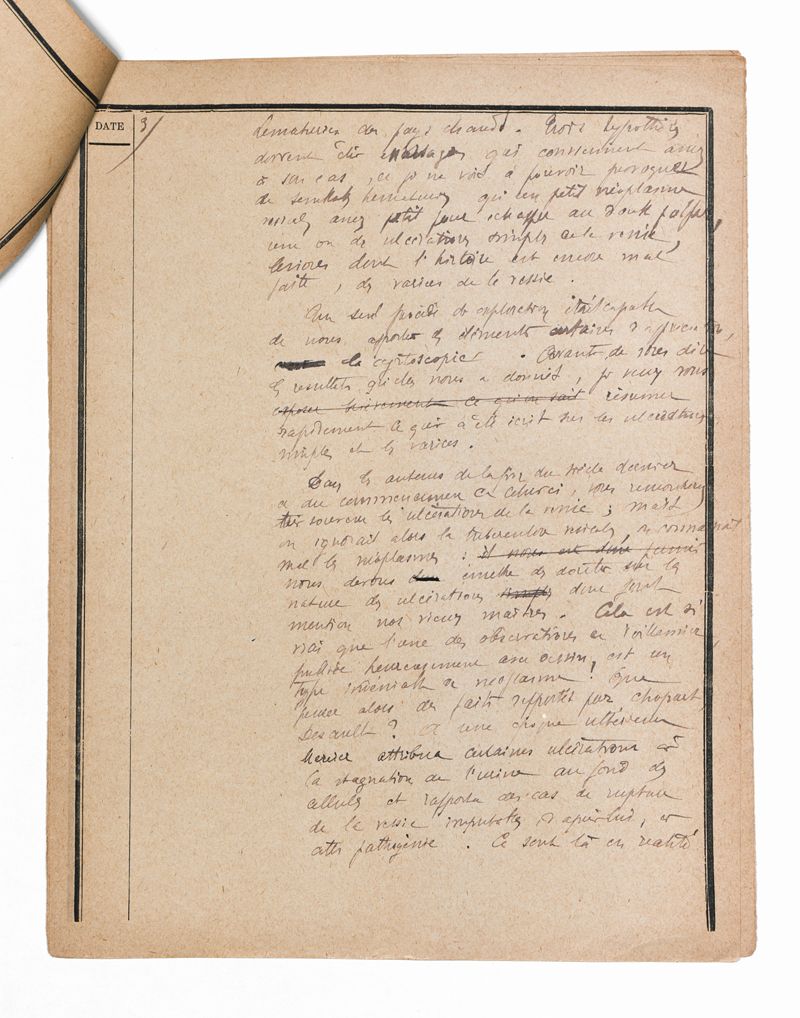 DATE
3/
hématuries des pays chauds. Trois hypothèses
doivent être envisagées qui conviennent assez
à son cas, et je ne vois à pouvoir provoquer
de semblables hématuries qu'un petit néoplasme
vésical, assez petit pour échapper au double palper,
une ou des ulcérations simples de la vessie,
lésions dont l'histoire est encore mal
faite, des varices de la vessie.
Un seul procédé d'exploration était capable
de nous apporter des éléments certains d'appréciation,
la cystoscopie. Avant de vous dire
les résultats qu'elle nous a donnés, je veux vous
exposer brièvement ce qu'on sait résumer
rapidement ce qui a été écrit sur les ulcérations
simples et les varices.
Dans les auteurs de la fin du siècle dernier
et du commencement de celui-ci, vous remontrez
très souvent les ulcérations de la vessie; mais
on ignorait alors la tuberculose vésicale, on connaissait
mal les néoplasmes: il nous est donc permis
nous devons émettre des doutes sur la
nature des ulcérations simples dont font
mention nos vieux maîtres. Cela est si
vrai que l'une des observations de Voillemier,
publiée heureusement avec dessin, est un
type indéniable de néoplasme. Que
penser alors des faits rapportés par Chopart
Desault? A une époque ultérieure
Mercier attribua certaines ulcérations à
la stagnation de l'urine au fond des
cellules et rapporta des cas de rupture
de la vessie imputables, d'après lui, à
cette pathogénie. Ce sont là en réalité